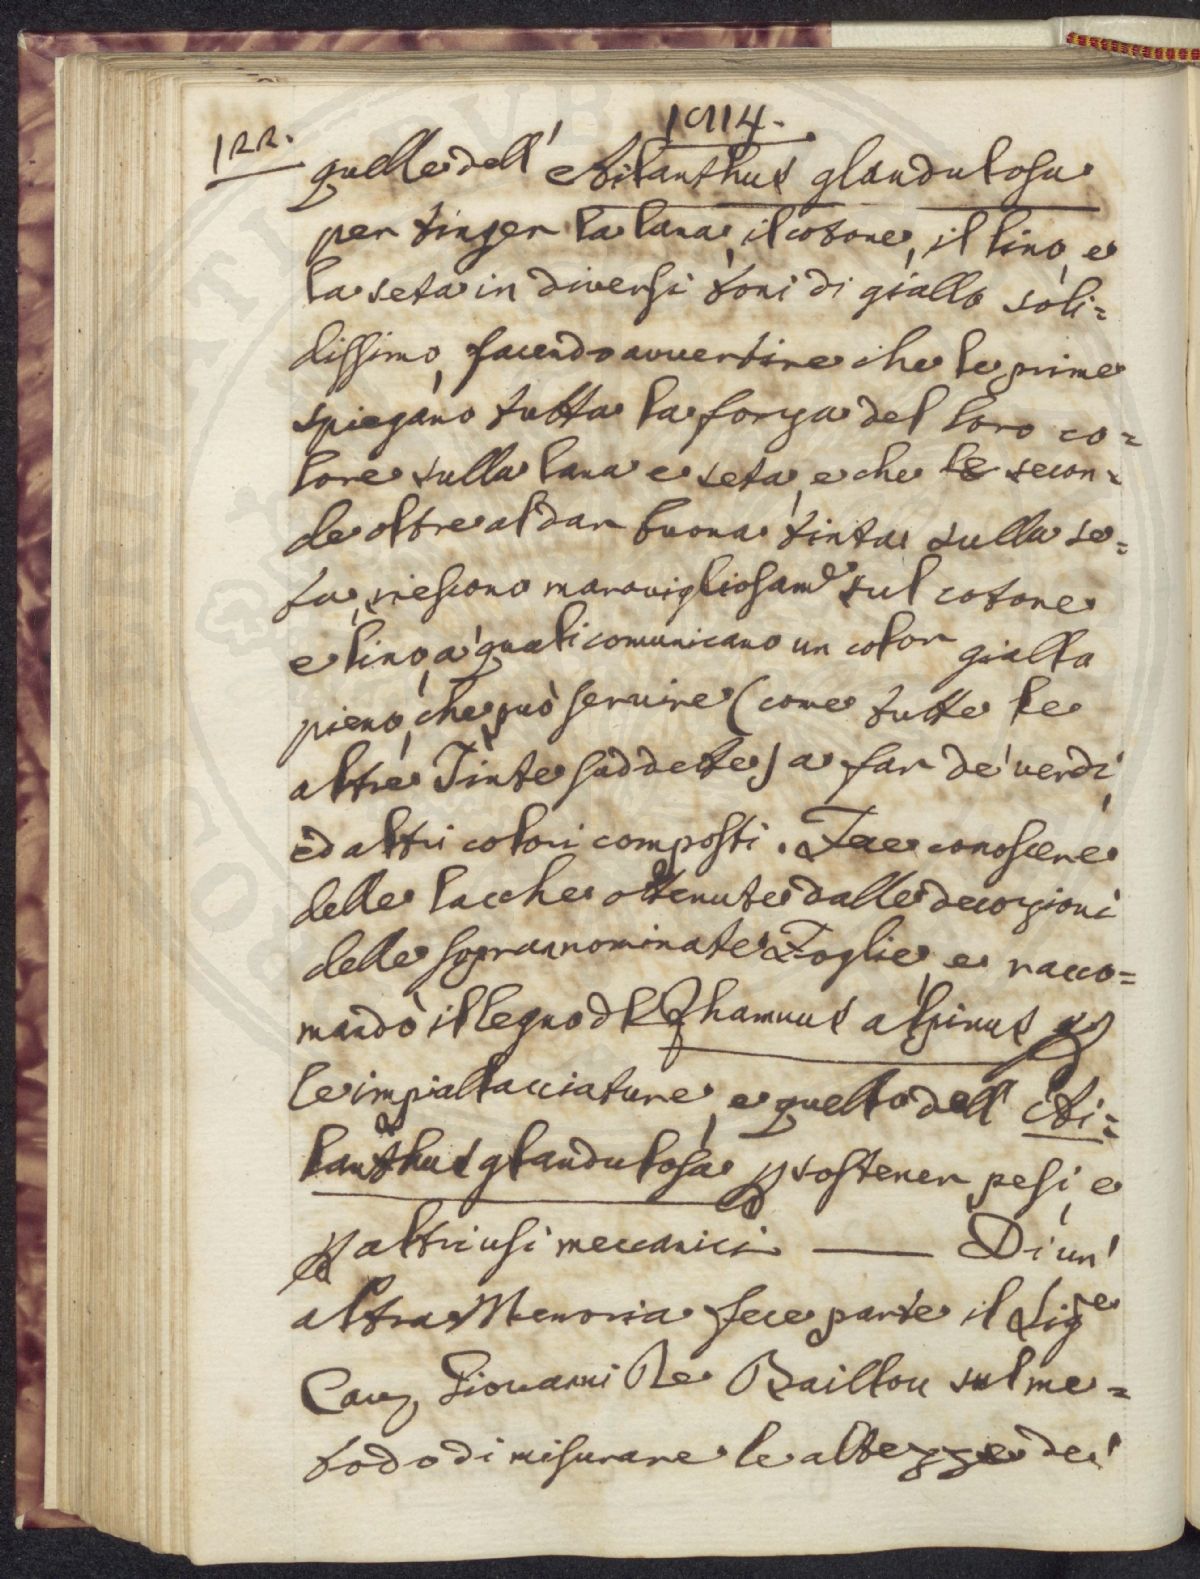 1914.
122.
quelle dell' Ailanthus glandulosa
per tinger la lana, il cotone, il lino, e
la seta in diversi toni di giallo soli=
dissimo, facendo avvertire che le prime
spiegano tutta la forza del loro co=
lore sulla lana e seta, e che le secon=
de oltre al dar buona tinta sulla se=
ta, riescono maravigliosam.e sul cotone
e lino, a' quali comunicano un color giallo
pieno, che può servire (come tutte le
altre Tinte suddette) a far de' verdi,
ed altri colori composti. Fece conoscere
delle lacche ottenute dalle decozioni
delle sopranominate Foglie, e racco=
mandò il legno del Rhamnus alpinus p
le impiallacciature, e quello dell' Ai=
lanthus glandulosa p sostener pesi, e
p altri usi meccanici — Di un'
altra Memoria fece parte il Sig.e
Cav. Giovanni De Baillou sul me=
todo di misurare le altezze de'